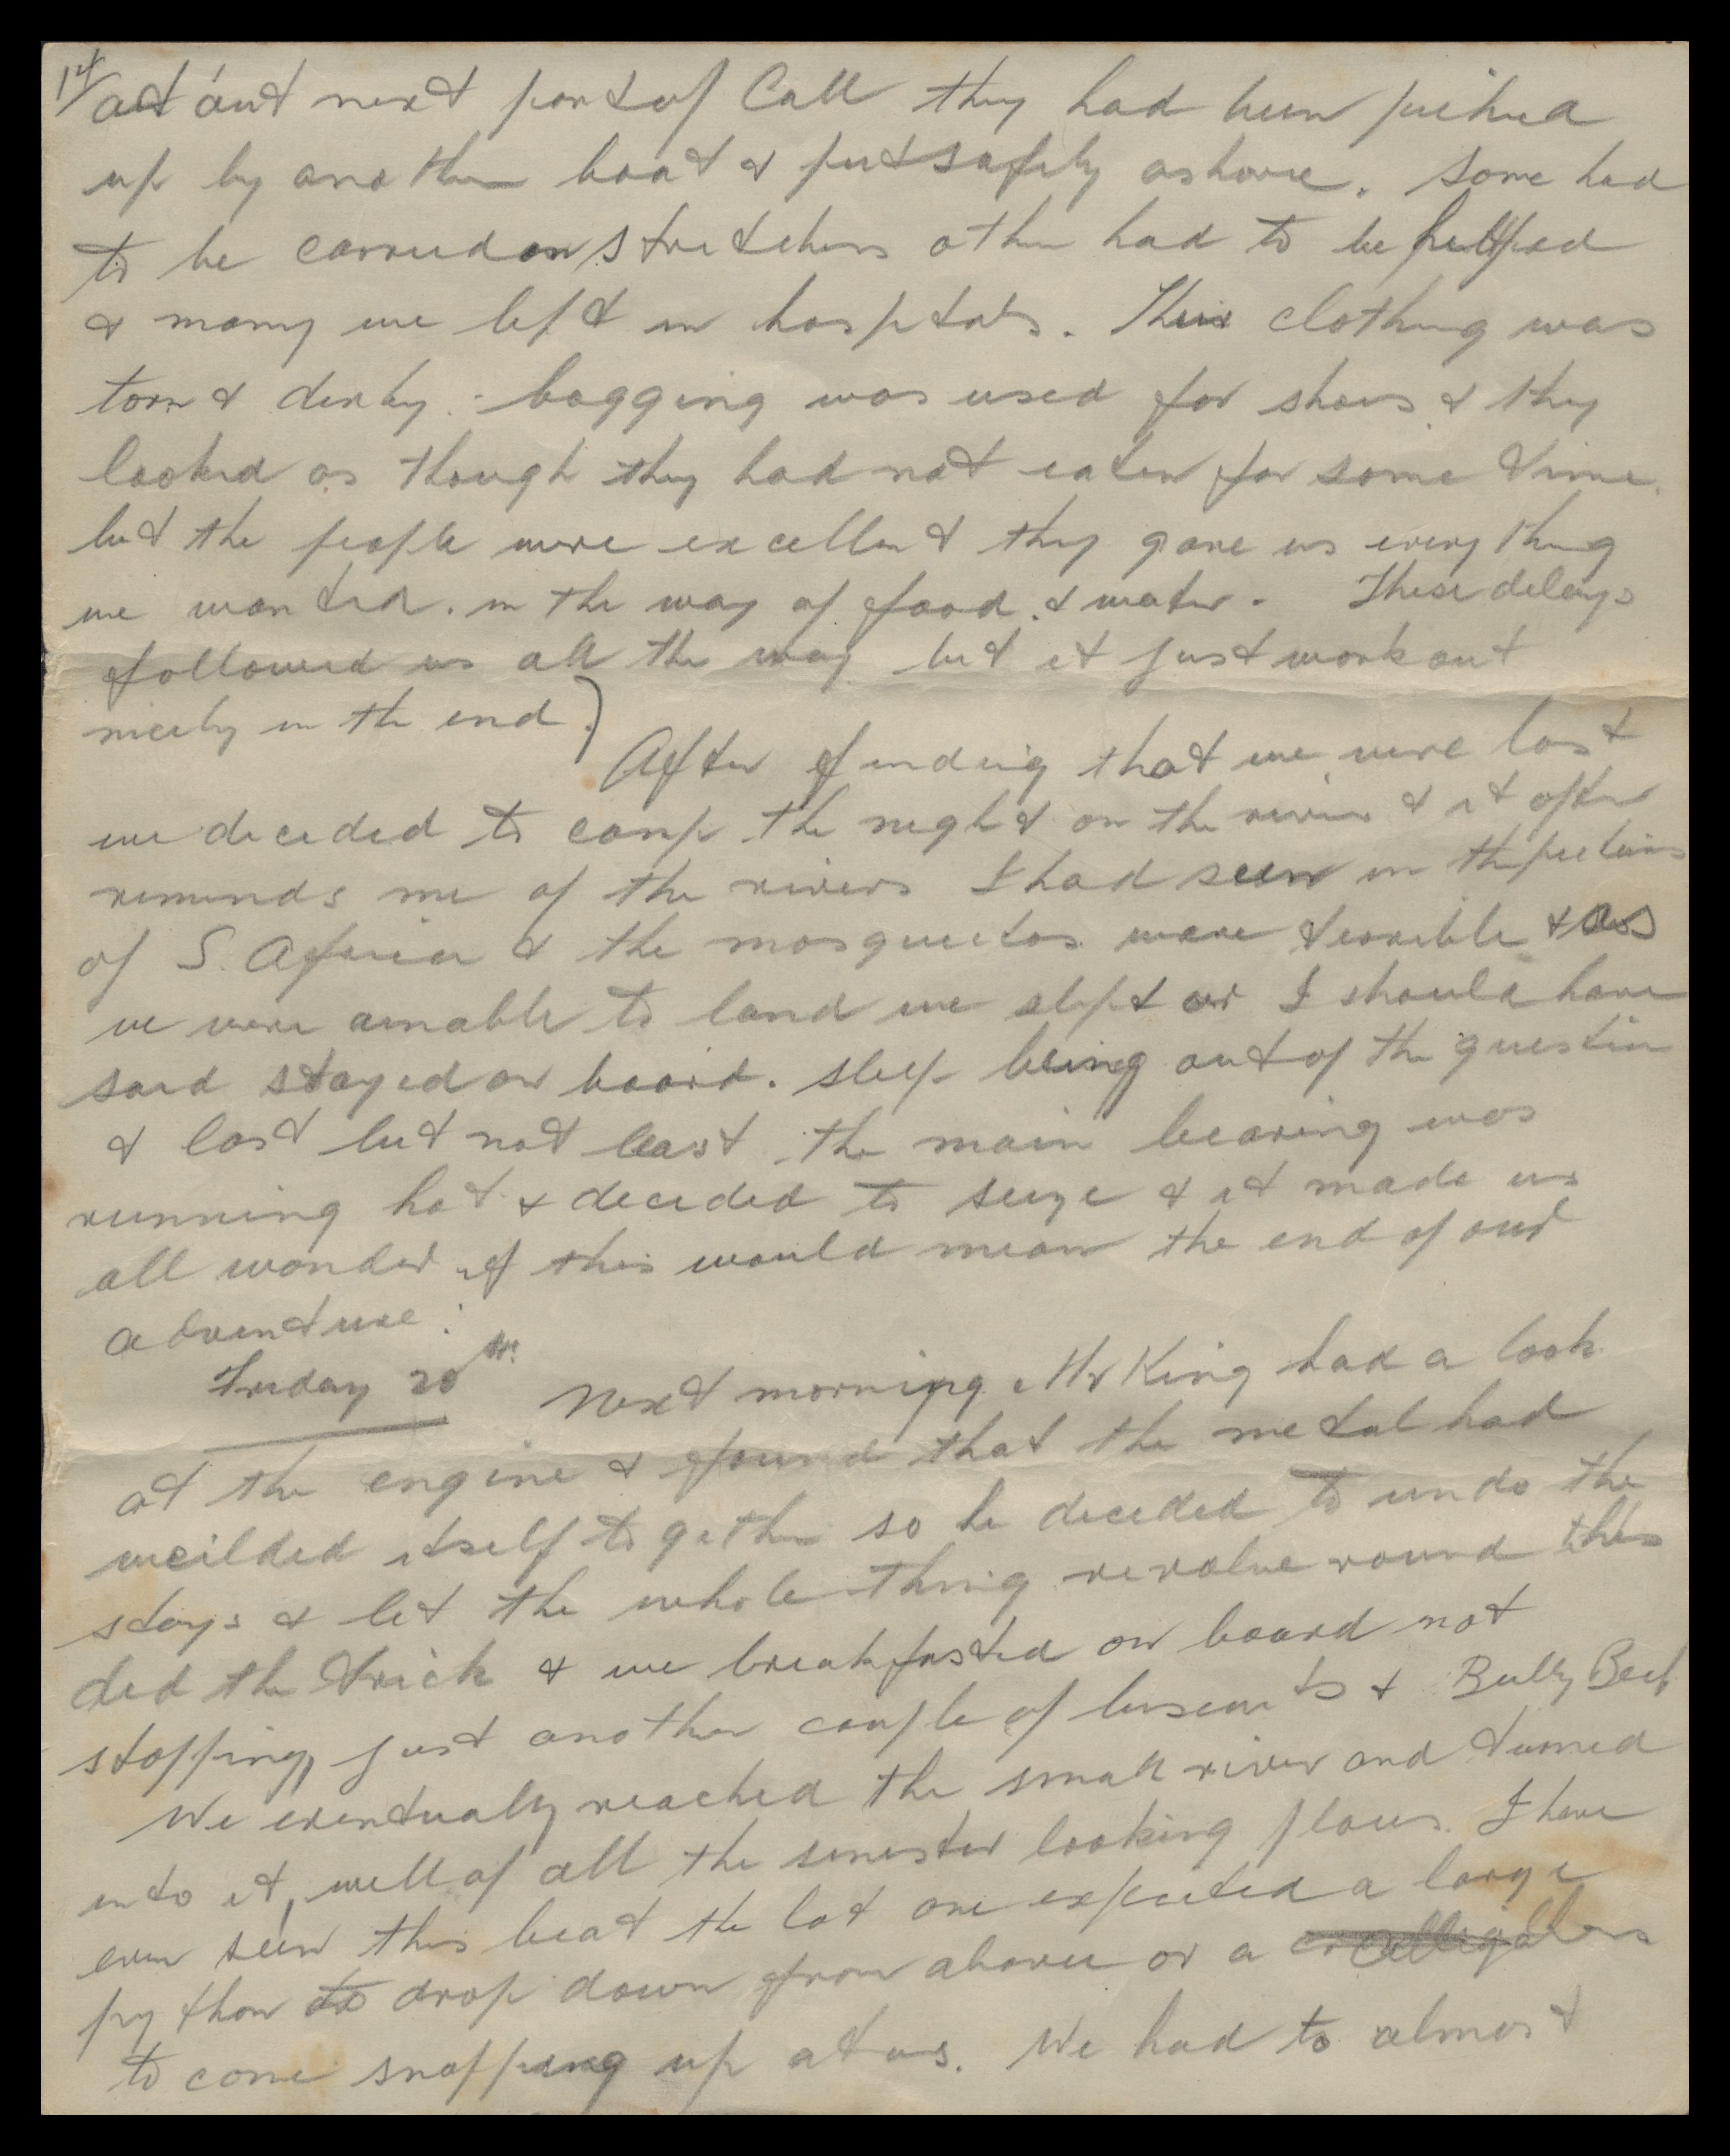 14/
at our next port of Call they had been picked
up by another boat & put safely ashore. Some had
to be carried on stretchers other had to be helped
& many we left in hospitals. Their clothing was
torn & dirty. bagging was used for shoes & they
looked as though they had not eaten for some time.
but the people were excellent they gave us every thing
we wanted. in the way of food. & water. These delays
followed us all the way but it just work out
nicely in the end.)
After finding that we were lost
we decided to camp the night on the river & it often
reminds me of the rivers I had seen in the pictures
of S. Africa & the mosquitos were terrible & as
we were unable to land we slept or I should have
said stayed on board. sleep being out of the question
& last but not least the main bearing was
running hot & decided to seize & it made us
all wonder if this would mean the end of our
adventure.
Friday 20th. Next morning Mr King had a look
at the engine & found that the metal had
weilded itself together so he decided to undo the
stays & let the whole thing revolve round this
did the trick & we breakfasted on board not
stopping, just another couple of biscuits & Bully Beef
We eventually reached the small river and turned
into it, well of all the sinester looking places I have
ever seen this beat the lot one expected a large
python to drop down from above or a alligators
to come snapping up at us. We had to almost